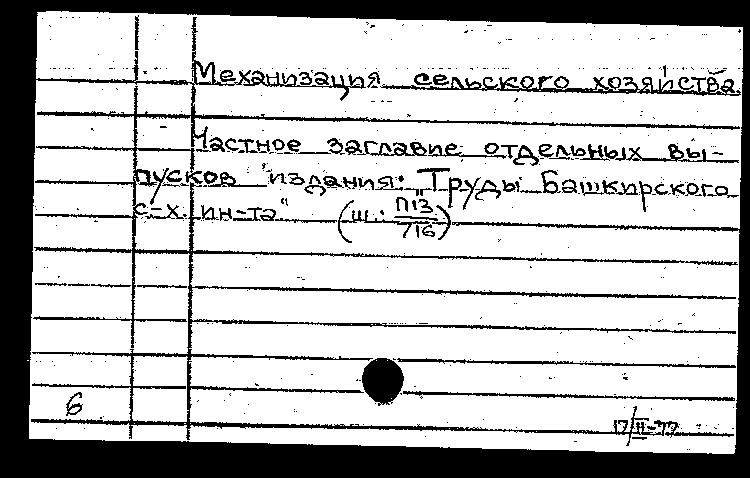 Механизация сельского хозяйства.
Частное заглавие отдельных вы-
пусков издания: "Труды Башкирского
с-х. ин-та" (ш.: П13/716)
6
17/II-77